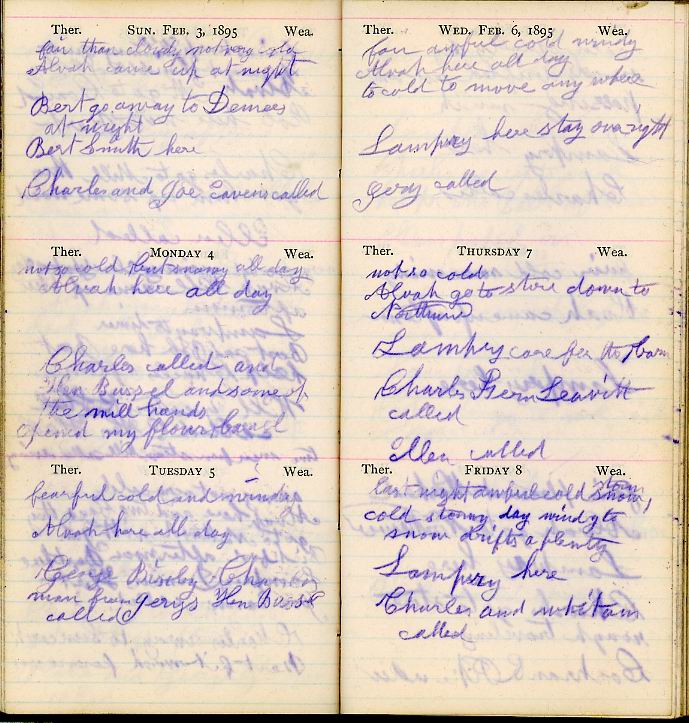 Ther. SUN. FEB. 3, 1895 Wea.
fair than cloudy not very cold
Alvah came up at night
Bert go away to Demees
at night
Bert Smith here
Charles and Joe called
Ther. MONDAY 4 Wea.
not so cold but snowy all day
Alvah here all day
Charles called and
Hen Bussel and some of
the mill hands
opened my flour barel
Ther. TUESDAY 5 Wea.
fearful cold and windy
Alvah here all day
George Charles
man from Gerys Hen Bussel
called
Ther. WED. FEB. 6, 1895 Wea.
fair awful cold windy
Alvah here all day
to cold to move any where
Lampry here stay over night
Gery called
Ther. THURSDAY 7 Wea.
not so cold
Alvah go to store down to
Lampry care for the barn
Charles Leavitt
called
Ellen called
Ther. FRIDAY 8 Wea.
last night awful cold storm
snow,
cold stormy day windy to
snow drifts a plenty
Lampry here
Charles and whitam
called